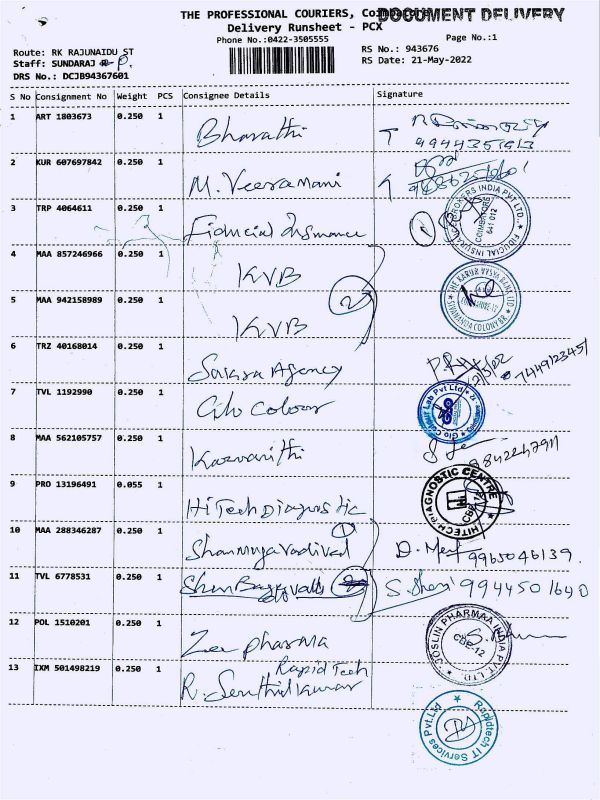 THE PROFESSIONAL COURIERS,
DOCUMENT DELIVERY
Delivery Runsheet - PCX
Phone No.:0422-3505555
Page No.:1
Route: RK RAJUNAIDU ST
RS No.: 943676
Staff: SUNDARAJ
RS Date: 21-May-2022
DRS No.: DCJB94367601
S No Consignment No Weight PCS Consignee Details Signature
1 ART 1803673 0.250 1 Bharathi
9944351913
2 KUR 607697842 0.250 1 M. Veeramani
3 TRP 4064611 0.250 1 Fiducial Insurance 1
FIDUCIAL INSURANCE BROKERS INDIA PVT LTD. COIMBATORE 641 012
4 MAA 857246966 0.250 1 KVB
2
THE KARUR VYSYA BANK LTD SIVANANDA COLONY BR
5 MAA 942158989 0.250 1 KVB
6 TRZ 40168014 0.250 1 Agency
7449123451
7 TVL 1192990 0.250 1 Glo Colour
Glo Colour Lab Pvt Ltd
8 MAA 562105757 0.250 1
9842247911
9 PRO 13196491 0.055 1 HiTech Diagnostic
HITECH DIAGNOSTIC CENTRE CBE-12
10 MAA 288346287 0.250 1 Shanmugavadivel 1
9965046139.
11 TVL 6778531 0.250 1
9944501640
12 POL 1510201 0.250 1 Zee pharma
JOSLIN PHARMAA INDIA PVT LTD. CBE-12
13 IXM 501498219 0.250 1 Rapid Tech
R. Senthilkumar
Rapidtech IT Services Pvt.Ltd